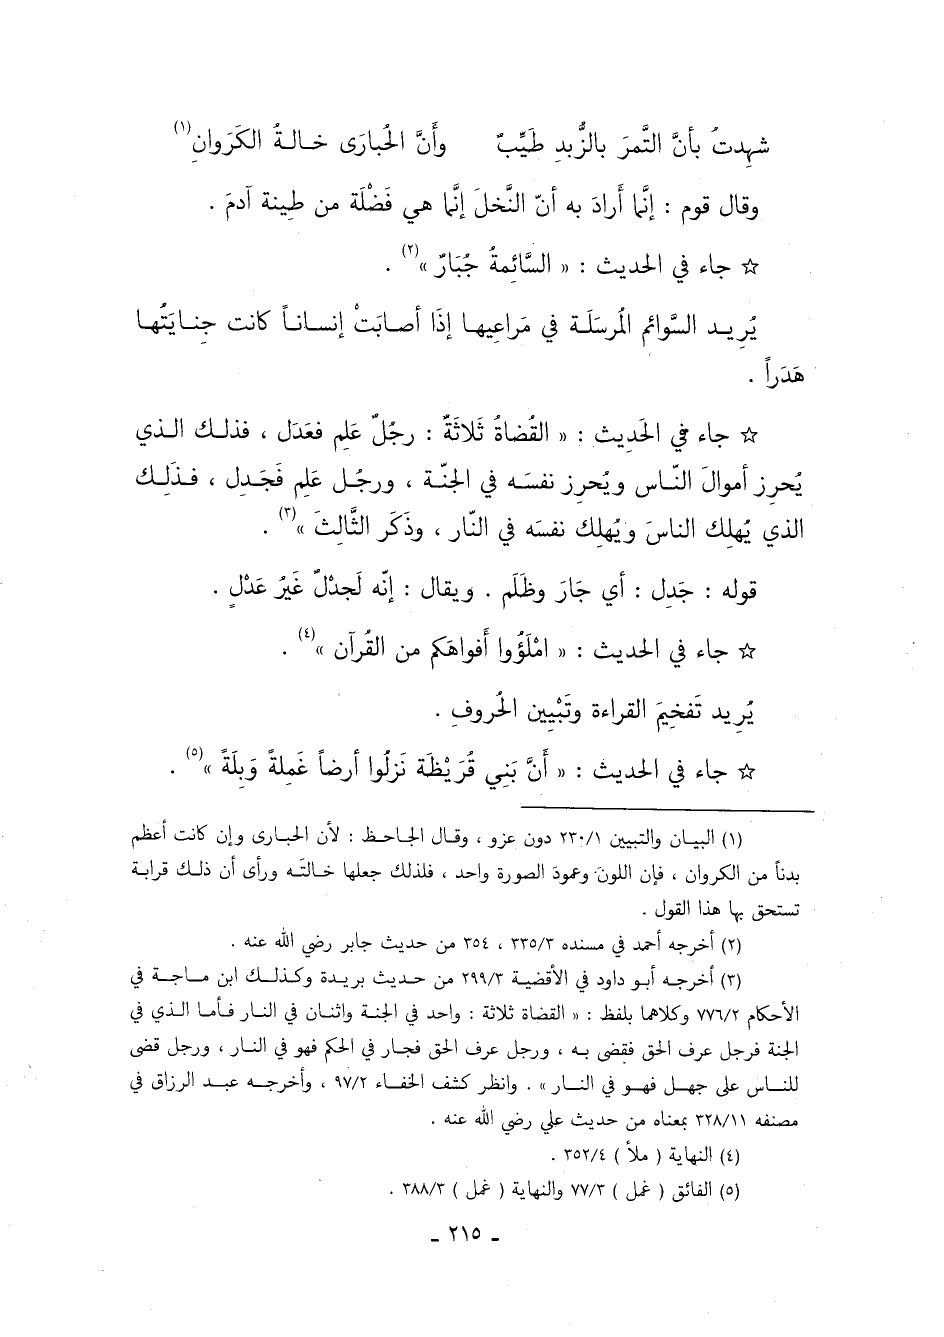 شهدتُ بأنَّ التَّمرَ بالزُّبدِ طَيِّبٌ وأَنَّ الحُبارَى خالةُ الكَرَوانِ(١)
وقال قوم : إنَّما أَرادَ به أنّ النَّخلَ إنَّما هي فَضْلَة من طِينة آدمَ .
☆ جاء في الحديث : « السَّائمةُ جُبَارٌ »(٢) .
يُرِيد السَّوائم المُرسَلَة في مَراعِيها إذَا أصابَتْ إنساناً كانت جِنايَتُها
هَدَراً .
☆ جاء في الحَدِيث : « القُضاةُ ثَلاثَةٌ : رجُلٌ عَلِم فعَدَل ، فذلك الذي
يُحرِز أموالَ النّاس ويُحرِز نفسَه في الجنّة ، ورجُل عَلِم فَجَدِل ، فذَلِك
الذي يُهلِك الناسَ ويُهلِك نفسَه في النّار ، وذَكَر الثَّالِثَ »(٣) .
قوله : جَدِل : أي جَارَ وظَلَم . ويقال : إنّه لَجدْلٌ غَيرُ عَدْلٍ .
☆ جاء في الحديث : « امْلَؤُوا أَفواهَكم من القُرآن »(٤) .
يُرِيد تَفخِيمَ القراءة وتَبْيِين الحُروفِ .
☆ جاء في الحديث : « أَنَّ بَنِي قُرَيْظَة نَزلُوا أرضاً غَمِلةً وَبِلَةً »(٥) .
(١) البيان والتبيين ٢٣٠/١ دون عزو ، وقال الجاحظ : لأن الحبارى وإن كانت أعظم
بدناً من الكروان ، فإن اللون وعمودَ الصورة واحد ، فلذلك جعلها خالتَه ورأى أن ذلك قرابة
تستحق بها هذا القول .
(٢) أخرجه أحمد في مسنده ٣٣٥/٣ ، ٣٥٤ من حديث جابر رضي الله عنه .
(٣) أخرجه أبو داود في الأقضية ٢٩٩/٣ من حديث بريدة وكذلك ابن ماجة في
الأحكام ٧٧٦/٢ وكلاهما بلفظ : « القضاة ثلاثة : واحد في الجنة واثنان في النار فأما الذي في
الجنة فرجل عرف الحق فقضى به ، ورجل عرف الحق فجار في الحكم فهو في النار ، ورجل قضى
للناس على جهل فهو في النار » . وانظر كشف الخفاء ٩٧/٢ ، وأخرجه عبد الرزاق في
مصنفه ٣٢٨/١١ بمعناه من حديث علي رضي الله عنه .
(٤) النهاية ( ملأ ) ٣٥٢/٤ .
(٥) الفائق ( غمل ) ٧٧/٣ والنهاية ( غمل ) ٣٨٨/٣ .
ـ ٢١٥ ـ